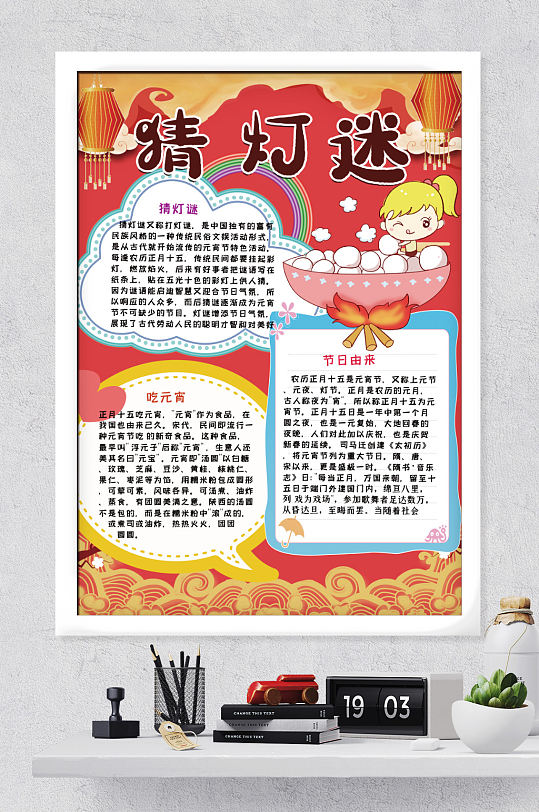 猜灯迷
猜灯谜
猜灯谜又称打灯谜，是中国独有的富有
民族风格的一种传统民俗文娱活动形式，
是从古代就开始流传的元宵节特色活动。
每逢农历正月十五，传统民间都要挂起彩
灯，燃放焰火，后来有好事者把谜语写在
纸条上，贴在五光十色的彩灯上供人猜。
因为谜语能启迪智慧又迎合节日气氛，所
以响应的人众多，而后猜谜逐渐成为元宵
节不可缺少的节目。灯谜增添节日气氛，
展现了古代劳动人民的聪明才智和对美好
节日由来
农历正月十五是元宵节，又称上元节
、元夜、灯节。正月是农历的元月，
古人称夜为"宵"，所以称正月十五为元
宵节。正月十五日是一年中第一个月
圆之夜，也是一元复始，大地回春的
夜晚，人们对此加以庆祝，也是庆贺
新春的延续。司马迁创建《太初历》
，将元宵节列为重大节日。隋、唐、
宋以来，更是盛极一时。《隋书·音乐
志》日："每当正月，万国来朝，留至十
五日于端门外建国门内，绵亘八里，
列戏为戏场"，参加歌舞者足达数万，
从昏达旦，至晦而罢。当随着社会
吃元宵
正月十五吃元宵，"元宵"作为食品，在
我国也由来已久。宋代，民间即流行一
种元宵节吃的新奇食品。这种食品，
最早叫"浮元子"后称"元宵"，生意人还
美其名曰"元宝"。元宵即"汤圆"以白糖
、玫瑰、芝麻、豆沙、黄桂、核桃仁、
果仁、枣泥等为馅，用糯米粉包成圆形
，可荤可素，风味各异。可汤煮、油炸
、蒸食，有团圆美满之意。陕西的汤圆
不是包的，而是在糯米粉中"滚"成的，
或煮司或油炸，热热火火，团团
圆圆。
CHANGE THIS TEXT
CHANGE THIS TEXT
19 03